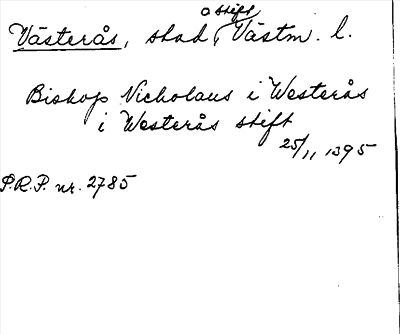 Västerås, stad o stift, Västm. l.
Biskop Nicholaus i Westerås
i Westerås stift
25/11 1395
S.R.P. nr. 2785